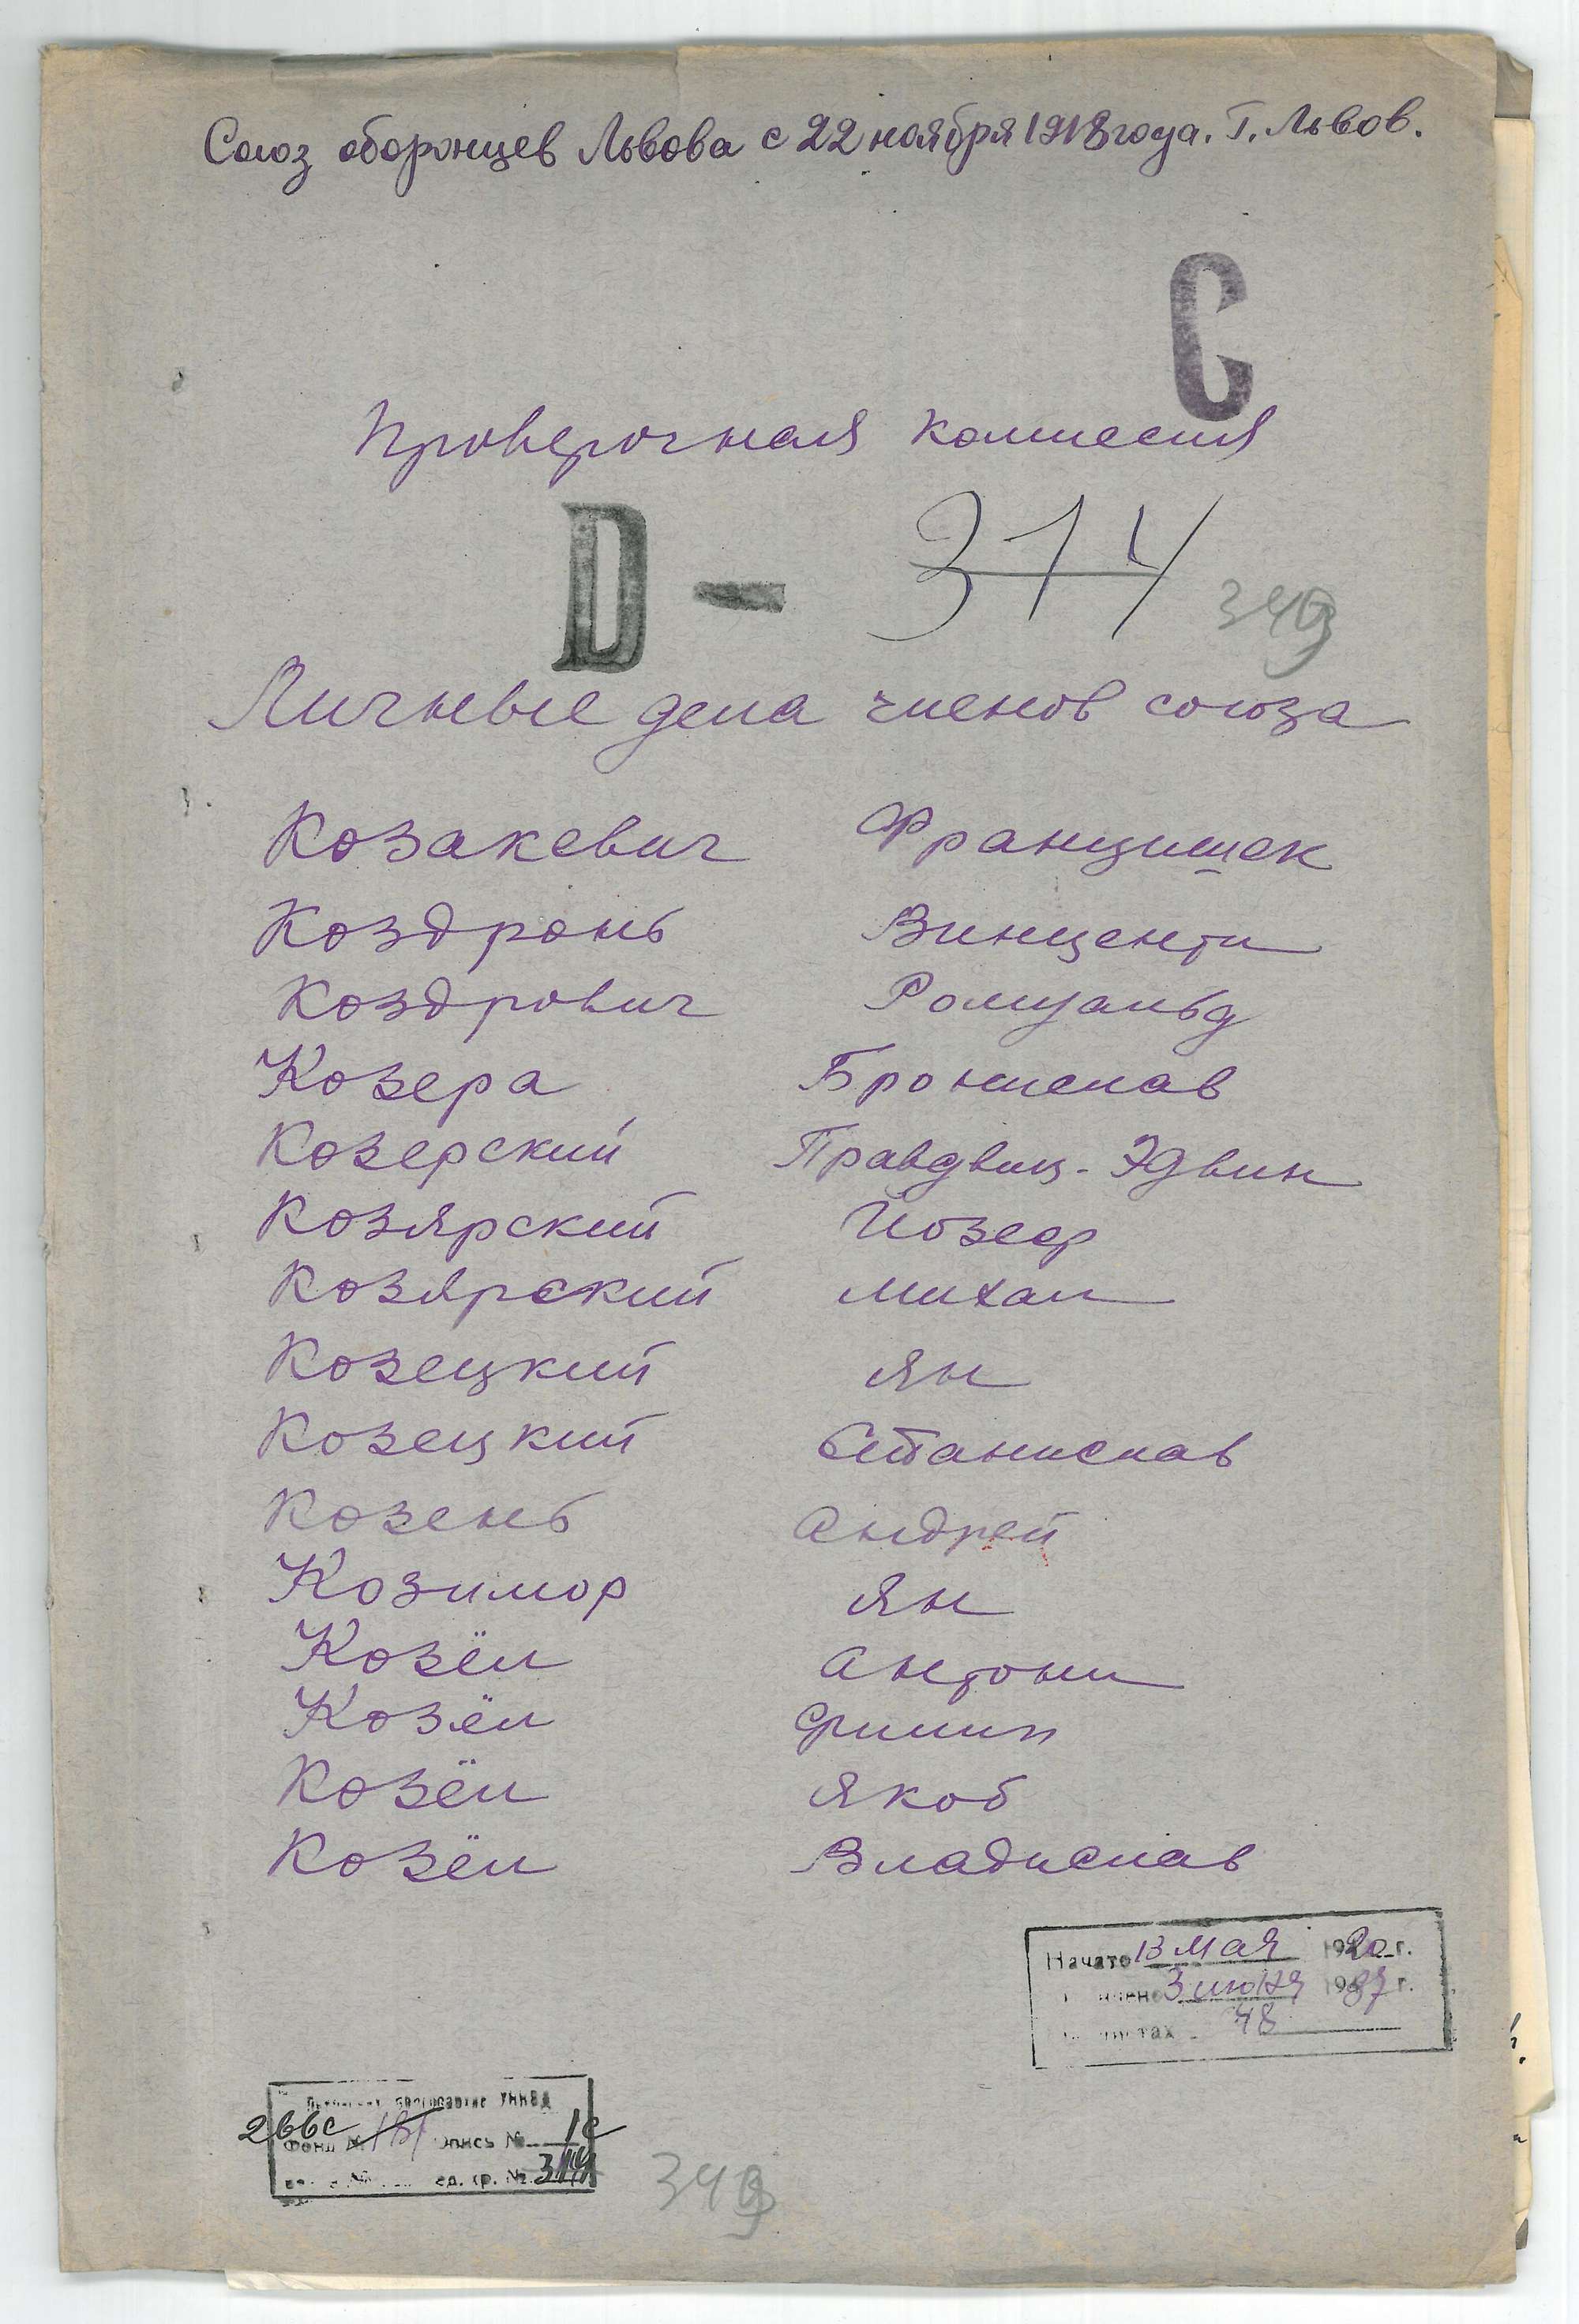 Союз оборонцев Львова с 22 ноября 1918 года. Г. Львов.
С
Проверочная комиссия
D - 314
349
Личные дела членов союза
Козакевич Францишек
Коздронь Винценти
Коздрович Ромуальд
Козера Бронислав
Козерский Правдвиц-Эдвин
Козярский Йозеф
Козярский Михал
Козецкий Ян
Козецкий Станислав
Козень Андрей
Козимор Ян
Козёл Антони
Козёл Филип
Козёл Якоб
Козёл Владислав
Начато 13 мая 1920 г.
3 июня 1937 г.
48
УНКВД
266с Фонд № 181 Опись № 1с
ед. хр. № 314
349